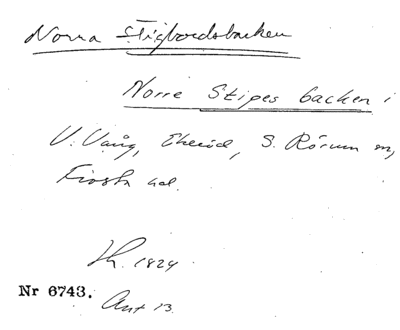 Norra Stigbordsbacken
Norre Stipes backen i
V. Vång, Ekeröd, S. Rörum sn,
Frosta hd.
Lh. 1824
Nr 6743.
Ant 13.